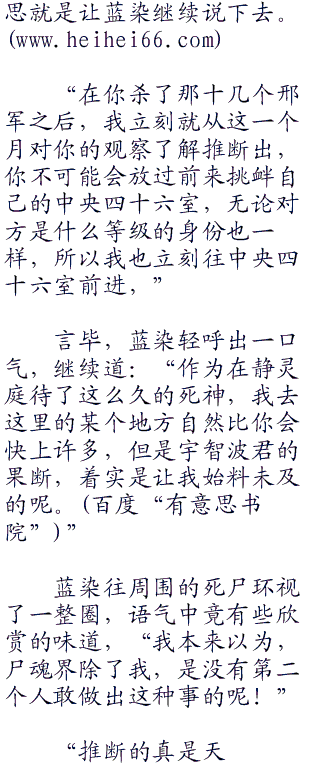 思就是让蓝染继续说下去。
(www.heihei66.com)
“在你杀了那十几个邢
军之后，我立刻就从这一个
月对你的观察了解推断出，
你不可能会放过前来挑衅自
己的中央四十六室，无论对
方是什么等级的身份也一
样，所以我也立刻往中央四
十六室前进，”
言毕，蓝染轻呼出一口
气，继续道：“作为在静灵
庭待了这么久的死神，我去
这里的某个地方自然比你会
快上许多，但是宇智波君的
果断，着实是让我始料未及
的呢。(百度“有意思书
院”)”
蓝染往周围的死尸环视
了一整圈，语气中竟有些欣
赏的味道，“我本来以为，
尸魂界除了我，是没有第二
个人敢做出这种事的呢！”
“推断的真是天